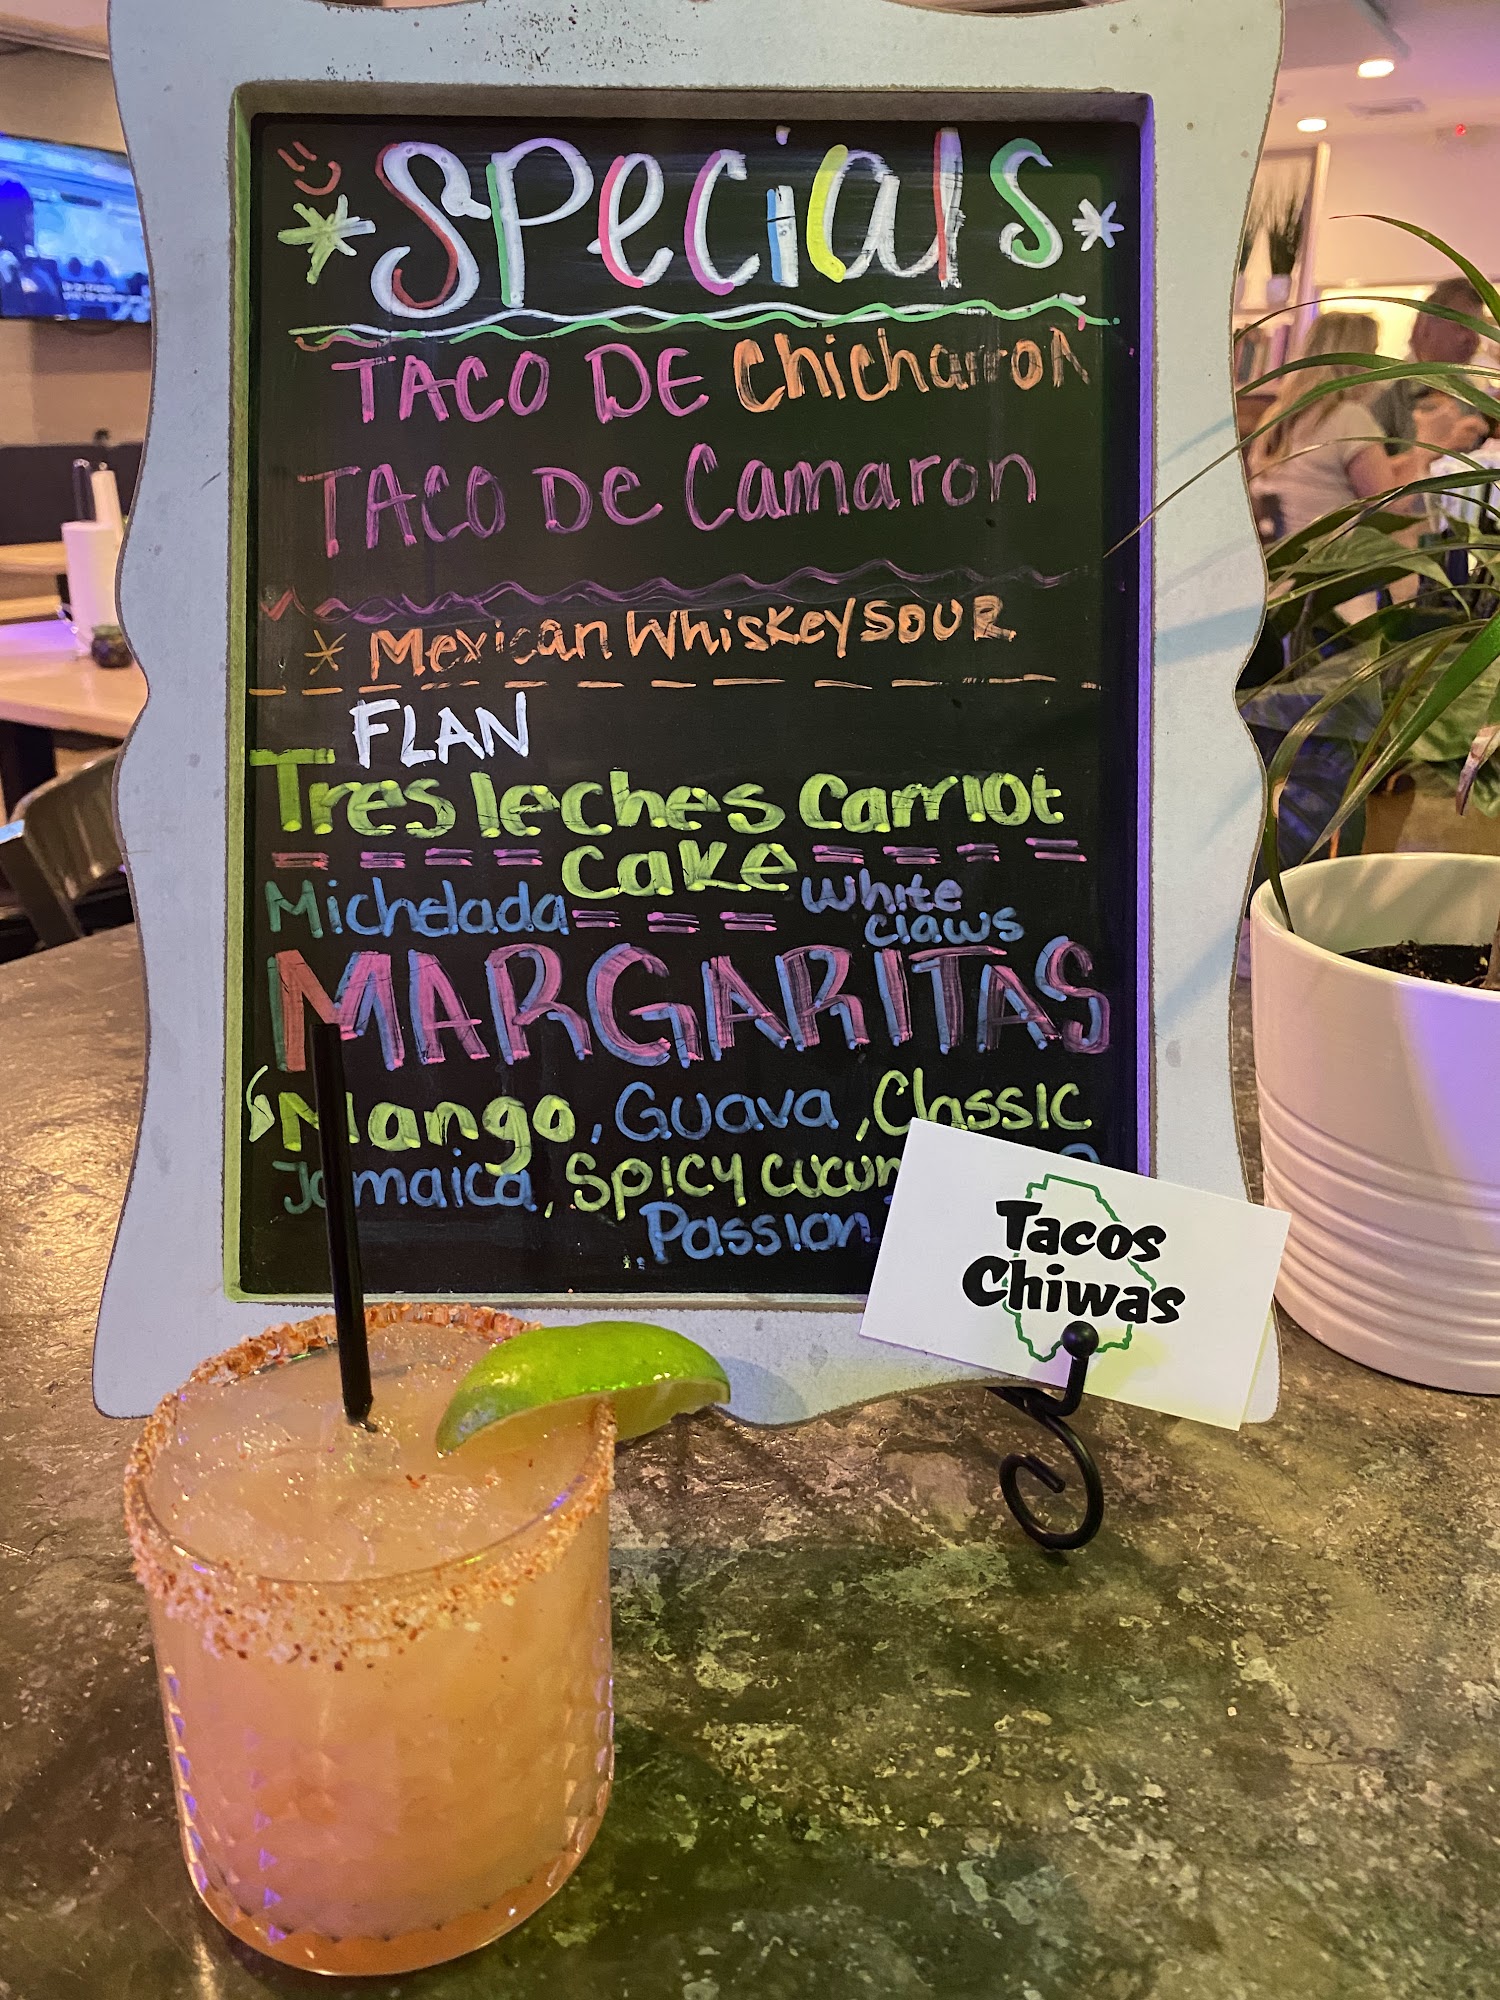 Specials
TACO DE Chicharron
TACO De Camaron
Mexican Whiskey SOUR
FLAN
Tres leches Carrot
cake
Michelada
White
claws
MARGARITAS
Mango, Guava, Classic
Jamaica, Spicy cucum
Passion
Tacos
Chiwas